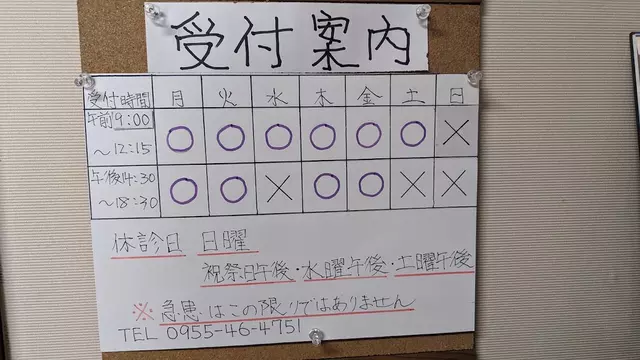 受付案内
受付時間 月 火 水 木 金 土 日
午前9:00 ○ ○ ○ ○ ○ ○ ×
～12:15
午後14:30 ○ ○ × ○ ○ × ×
～18:30
休診日 日曜
祝祭日午後・水曜午後・土曜午後
※急患はこの限りではありません
TEL 0955-46-4751